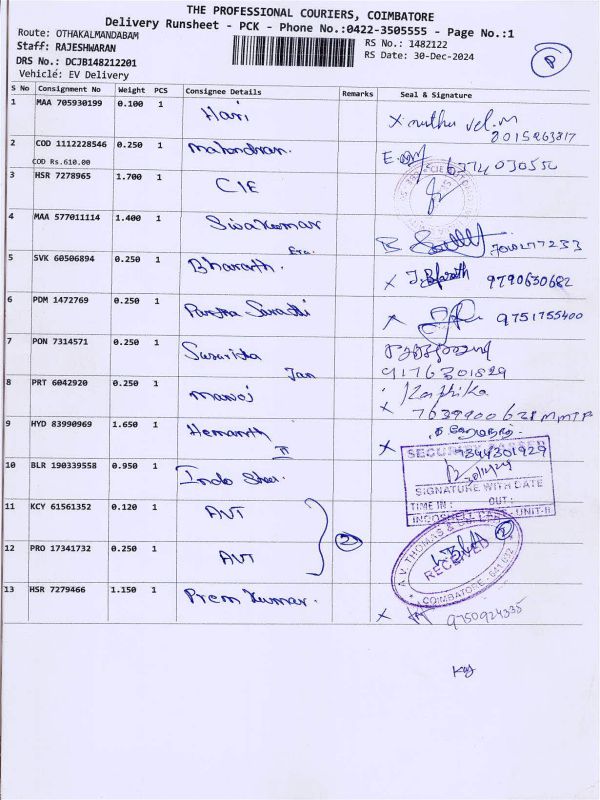 THE PROFESSIONAL COURIERS, COIMBATORE
Delivery Runsheet - PCK - Phone No.:0422-3505555 - Page No.:1
Route: OTHAKALMANDABAM
Staff: RAJESHWARAN
RS No.: 1482122
DRS No.: DCJB148212201
RS Date: 30-Dec-2024
Vehicle: EV Delivery
P
S No Consignment No Weight PCS Consignee Details Remarks Seal & Signature
1 MAA 705930199 0.100 1 Hari
x muthu vel.M
8015263817
2 COD 1112228546 0.250 1 Mahendran.
COD Rs.610.00
3 HSR 7278965 1.700 1 CIE
4 MAA 577011114 1.400 1 Sivakumar
5 SVK 60506894 0.250 1 Bharath. x J. Bharath 9790630682
6 PDM 1472769 0.250 1 Partha Saradhi x 9751755400
7 PON 7314571 0.250 1
9176301829
8 PRT 6042920 0.250 1 Manoj
Karthika
x
9 HYD 83990969 1.650 1 Hemanth
II
x
9344301929
10 BLR 190339558 0.950 1 Indo Shell.
30/12/24
SIGNATURE WITH DATE
TIME IN : OUT :
INDOSHELL CAST UNIT-II
11 KCY 61561352 0.120 1 AVT
2
12 PRO 17341732 0.250 1 AVT
A.V. THOMAS &
RECEIVED
COIMBATORE - 641 032
2
13 HSR 7279466 1.150 1 Prem kumar.
x 9750924335